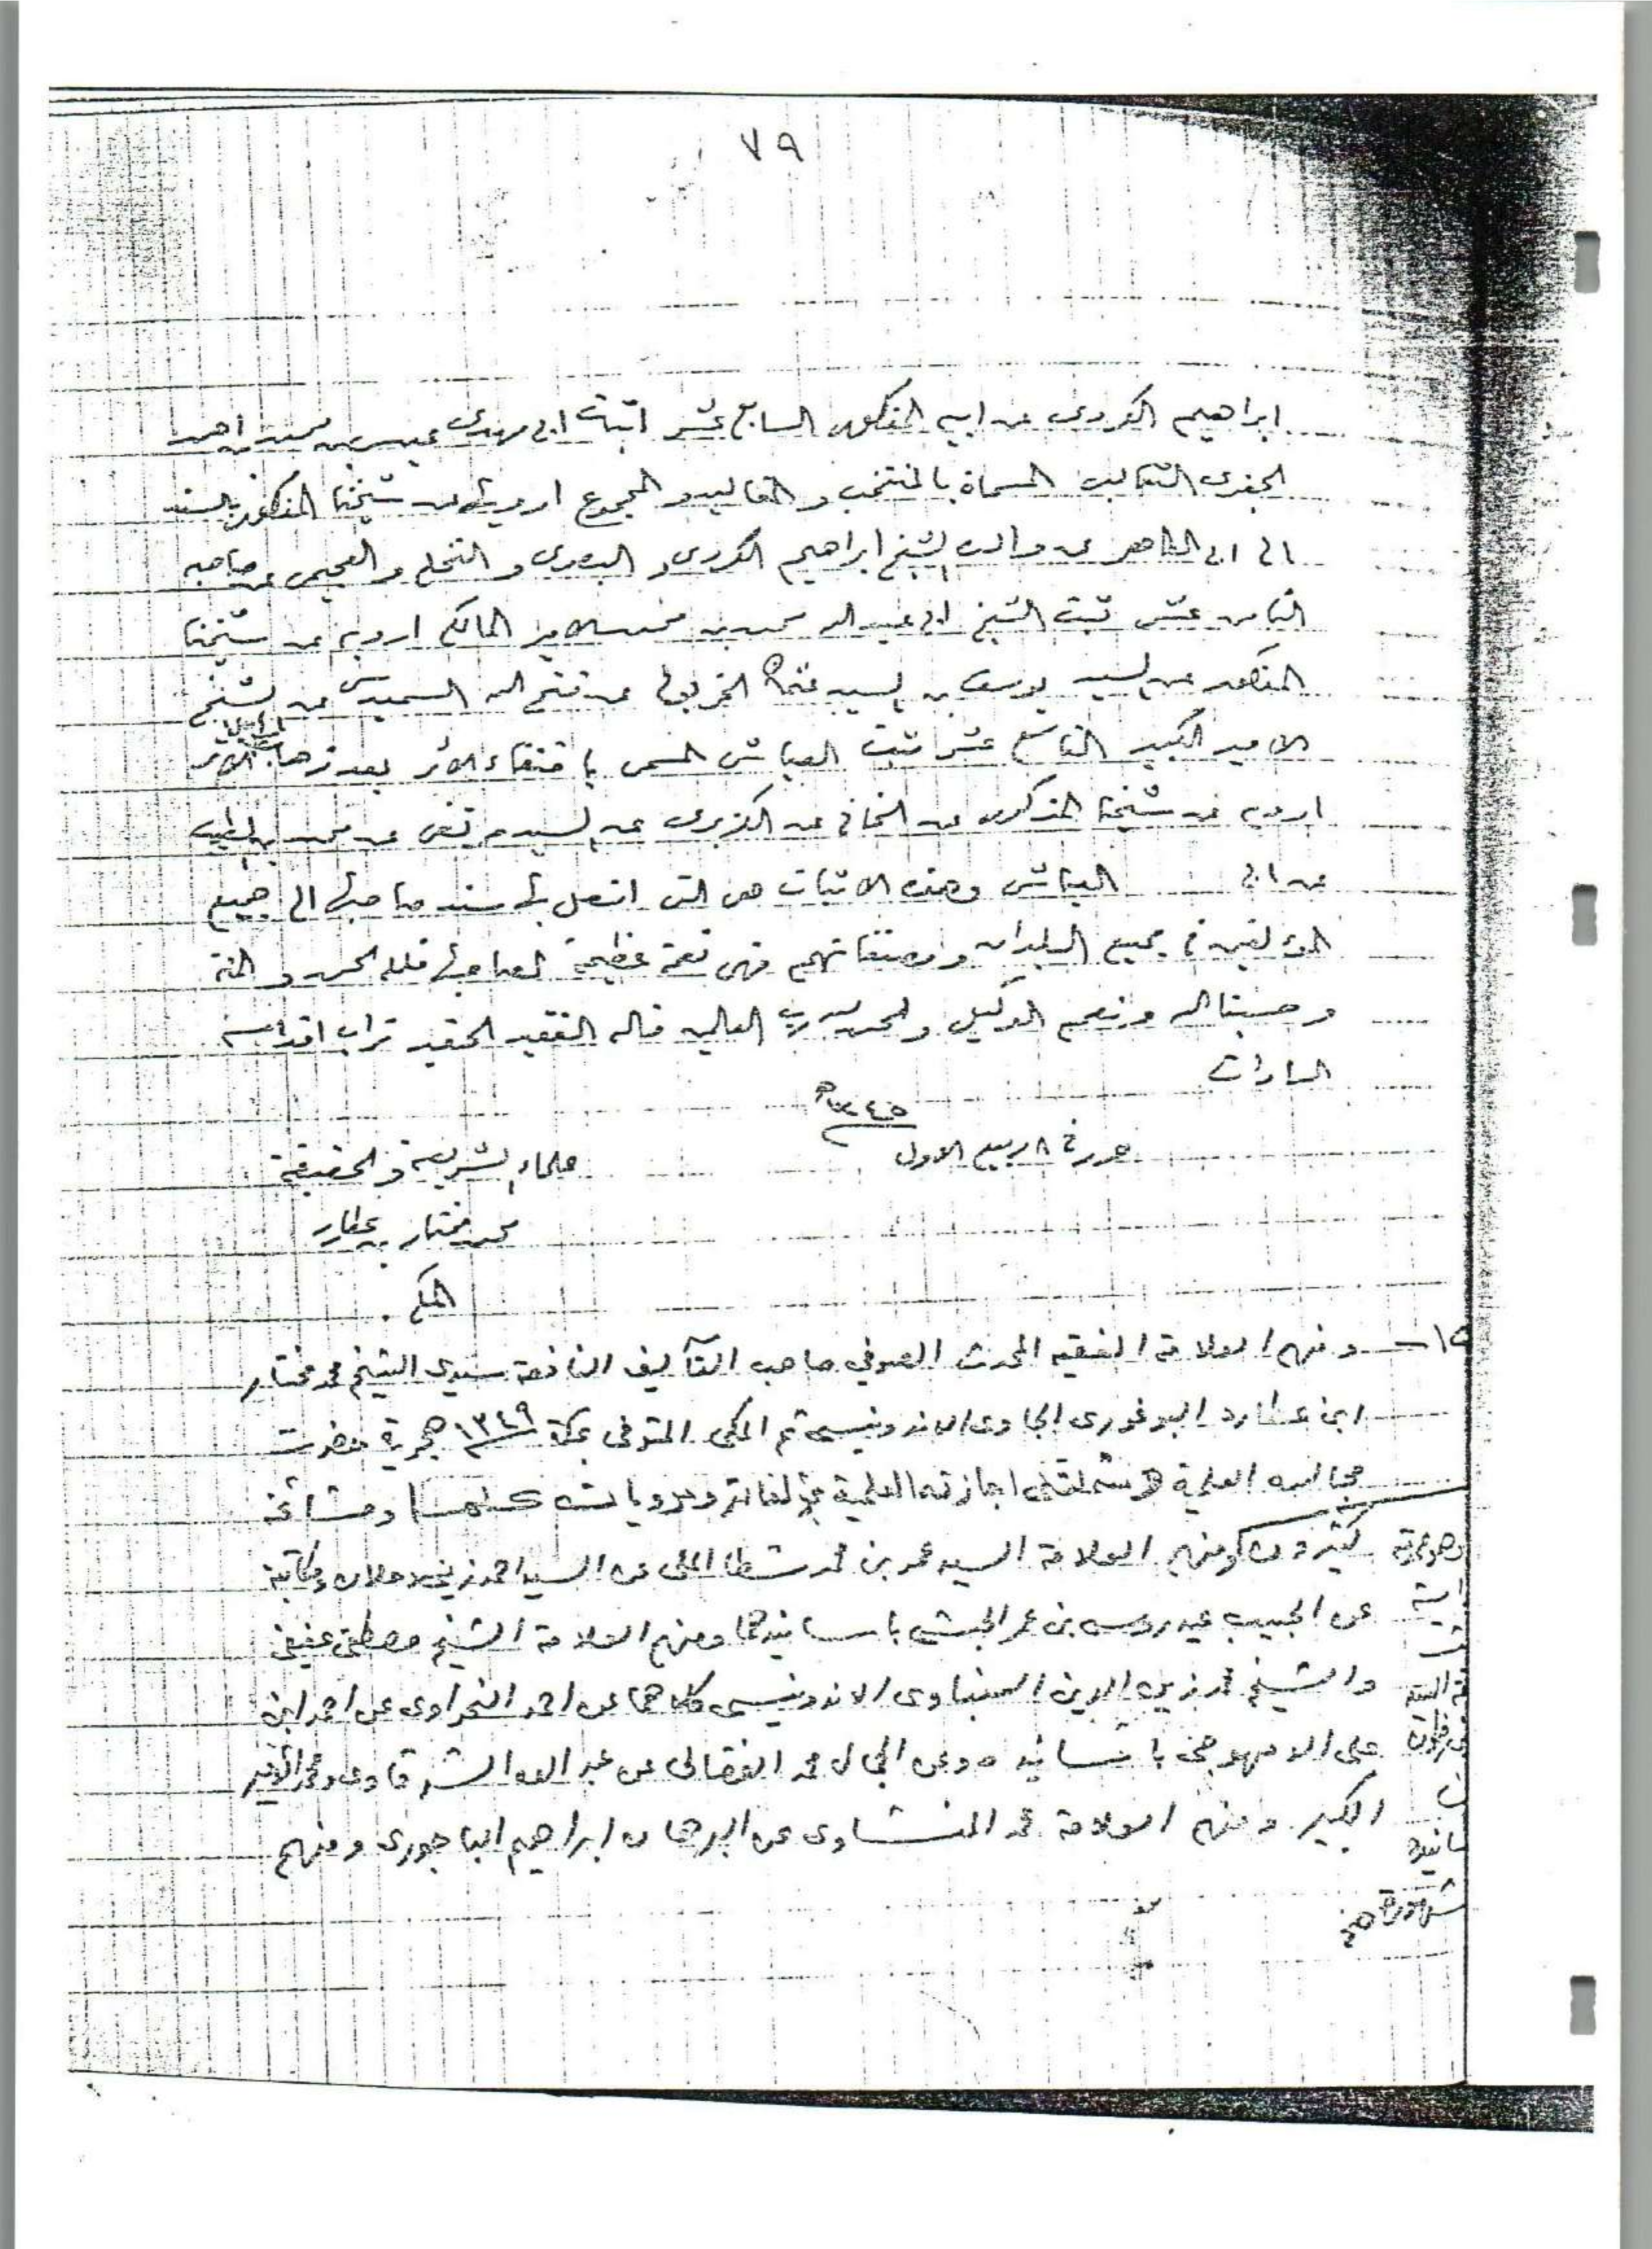 ٧٩
ابراهيم الكردى عن ابيه المذكور السابع عشر اثبات ابى مهدى عيسى بن محمد بن احمد
الجعفرى الثعالبى المسماة بالمنتخب و المقاليد و المجموع ارويها عن شيخنا المذكور بالسند
الى ابى الطاهر عن والده الشيخ ابراهيم الكردى و البصرى و النخلى و العجيمى عن صاحبه
الثامن عشر ثبت الشيخ ابى عبد الله محمد بن محمد الامير المالكى ارويه عن شيخنا
المذكور عن السيد يوسف بن السيد عثمان الخربوتى عن فتح الله السميديسى عن الشيخ
الامير الكبير التاسع عشر ثبت العياشى المسمى باقتفاء الاثر بعد ذهاب اهل الاثر
ارويه عن شيخنا المذكور عن الخانى عن الكزبرى عن السيد مرتضى عن محمد بن الطيب
عن ابى العياشى وهذه الاثبات هى التى اتصل بها سند صاحبها الى جميع
المؤلفين فى جميع البلدان ومصنفاتهم فهى نعمة عظيمة لصاحبها فلله الحمد و المنة
و حسبنا الله و نعم الوكيل والحمد لله رب العالمين قاله الفقير الحقير تراب اقدام
السادات
١٣٤٥ه
حرر فى ٨ ربيع الاول
علماء الشريعة و الحقيقة
محمد مختار بن عطارد
المكى
١٥ — ومنهم العلامة الفقيه المحدث الصوفي صاحب التآليف النافعة سيدى الشيخ محمد مختار
ابن عطارد البوغورى الجاوى الاندونيسى ثم المكى المتوفى بمكة ١٣٤٩ هجرية حضرت
مجالسه العلمية وشملتنى اجازته العلمية بمؤلفاته ومروياته كلها ومشائخه
كثيرون ومنهم العلامة السيد عمر بن محمد شطا المكى عن السيد احمد زينى دحلان ومكاتبة
عن الحبيب عيدروس بن عمر الحبشى باسانيدهما ومنهم العلامة الشيخ مصطفى عفيفى
والشيخ محمد زين الدين السمباوى الاندونيسى كلاهما عن احمد النحراوى عن احمد ابن
على الدمهوجى باسانيده وعن الجمال محمد الفضالى عن عبد الله الشرقاوى ومحمد الامير
الكبير ومنهم العلامة محمد المنشاوى عن البرهان ابراهيم الباجورى ومنهم